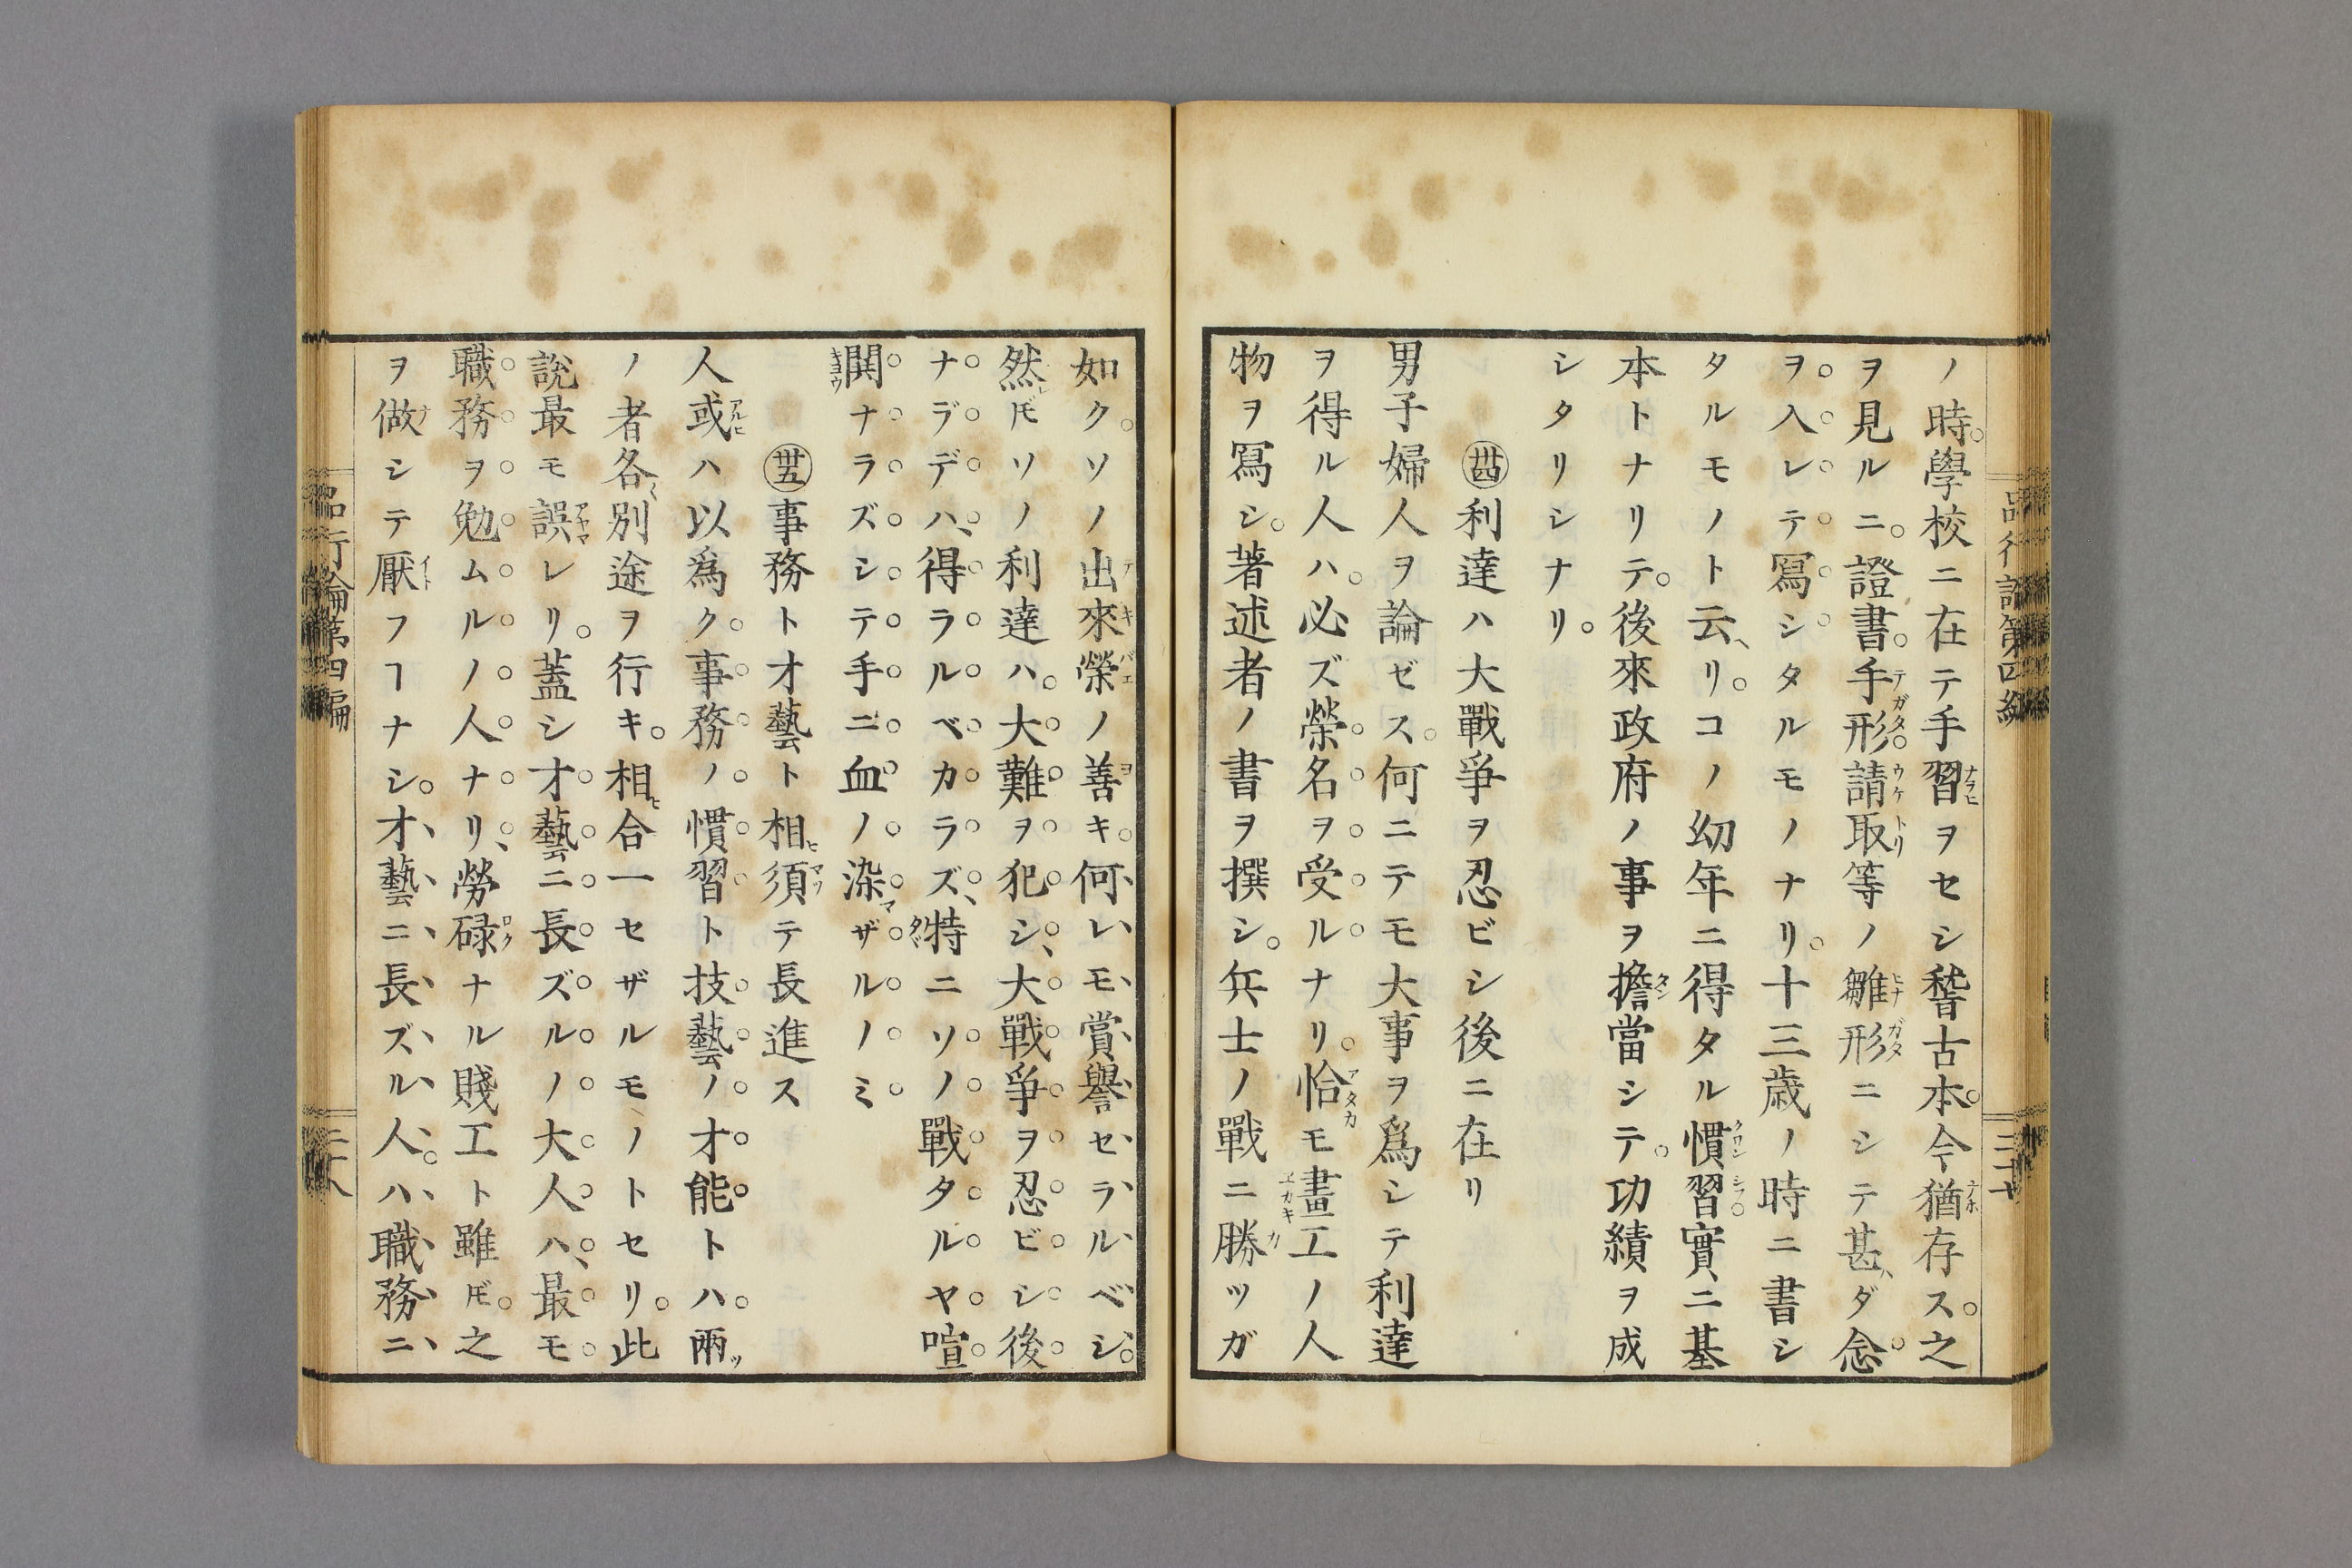 ノ時。學校ニ在テ手習ヲセシ稽古本。今猶存ス。之
ヲ見ルニ。證書。手形。請取等ノ雛形ニシテ甚ダ念
ヲ入レテ寫シタルモノナリ。十三歳ノ時ニ書シ
タルモノト云リ。コノ幼年ニ得タル慣習。實ニ基
本トナリテ。後來政府ノ事ヲ擔當シテ。功績ヲ成
シタリシナリ。
㔟利達ハ大戰爭ヲ忍ビシ後ニ在リ
男子婦人ヲ論ゼス。何ニテモ大事ヲ爲シテ利達
ヲ得ル人ハ。必ズ榮名ヲ受ルナリ。恰モ畫工ノ人
物ヲ寫シ。著述者ノ書ヲ撰シ。兵士ノ戰ニ勝ツガ
如ク。ソノ出來榮ノ善キ。何レモ賞譽セラルベシ。
然𪜈ソノ利達ハ。大難ヲ犯シ、大戰爭ヲ忍ビシ後
ナラデハ、得ラルベカラズ、特ニソノ戰タルヤ喧
鬨ナラズシテ手ニ血ノ染ザルノミ
㊟事務ト才藝ト相須テ長進ス
人或ハ以爲ク。事務ノ慣習ト技藝ノ才能トハ。兩
ノ者各別途ヲ行キ。相合一セザルモノトセリ。此
說最モ誤レリ。蓋シ才藝ニ長ズルノ大人ハ、最モ
職務ヲ勉ムルノ人ナリ、勞碌ナル賤工ト雖𪜈。之
ヲ做シテ厭フヿナシ。才藝ニ長ズル人。ハ職務ニ
品行論第四編